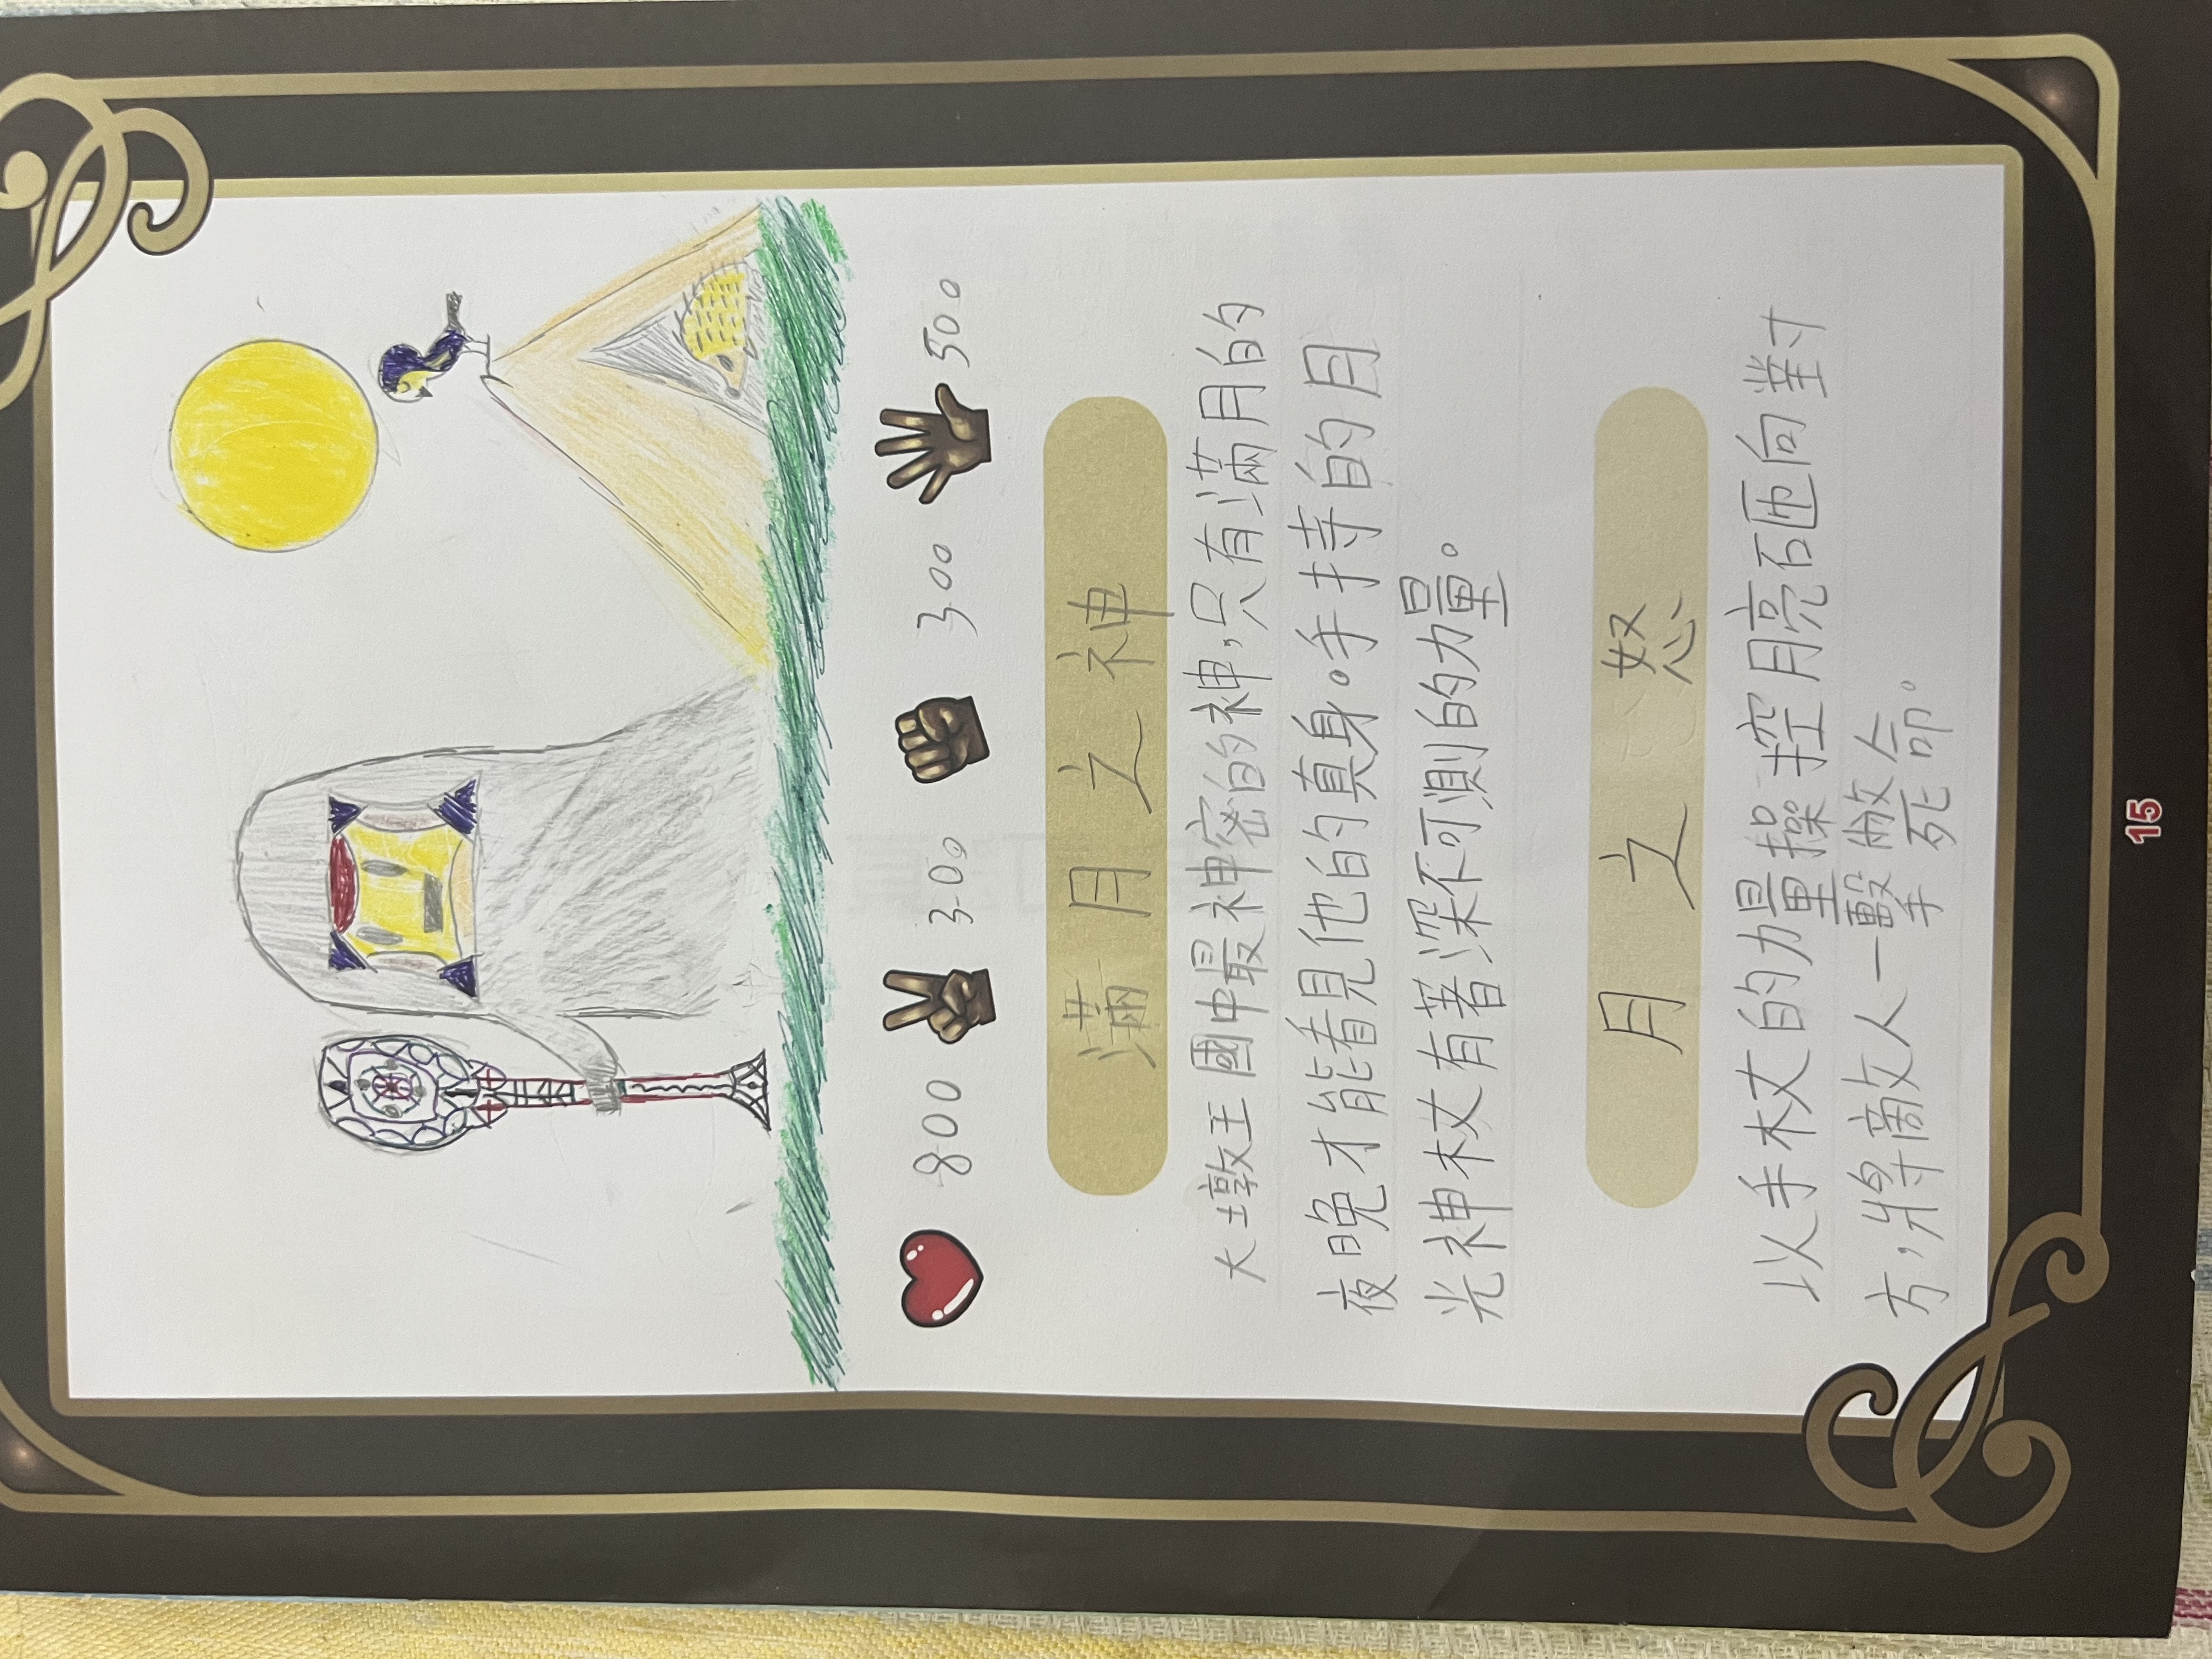 800 300 300 500
滿月之神
大墩王國中最神密的神,只有滿月的
夜晚才能看見他的真身。手持的月
光神杖有著深不可測的力量。
月之怒
以手杖的力量操控月亮砸向對
方,將敵人一擊斃命。
15